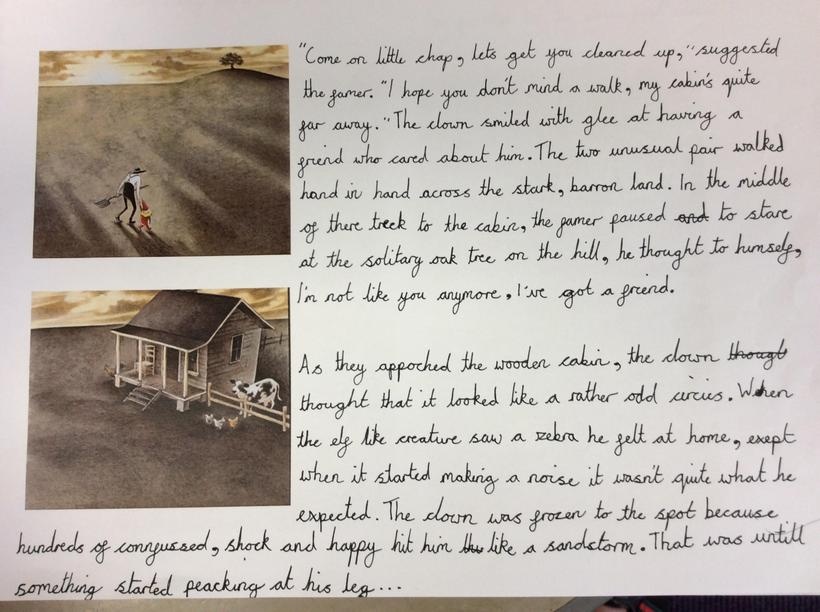 "Come on little chap, lets get you cleaned up," suggested
the famer. "I hope you don't mind a walk, my cabin's quite
far away." The clown smiled with glee at having a
friend who cared about him. The two unusual pair walked
hand in hand across the stark, barron land. In the middle
of there treck to the cabin, the famer paused and to stare
at the solitary oak tree on the hill, he thought to humself,
I'm not like you anymore, I've got a friend.
As they appoched the wooden cabin, the clown thougt
thought that it looked like a rather odd circus. When
the elf like creature saw a zebra he felt at home, exept
when it started making a noise it wasn't quite what he
expected. The clown was frozen to the spot because
hundreds of confussed, shock and happy hit him like a sandstorm. That was untill
something started peacking at his leg...